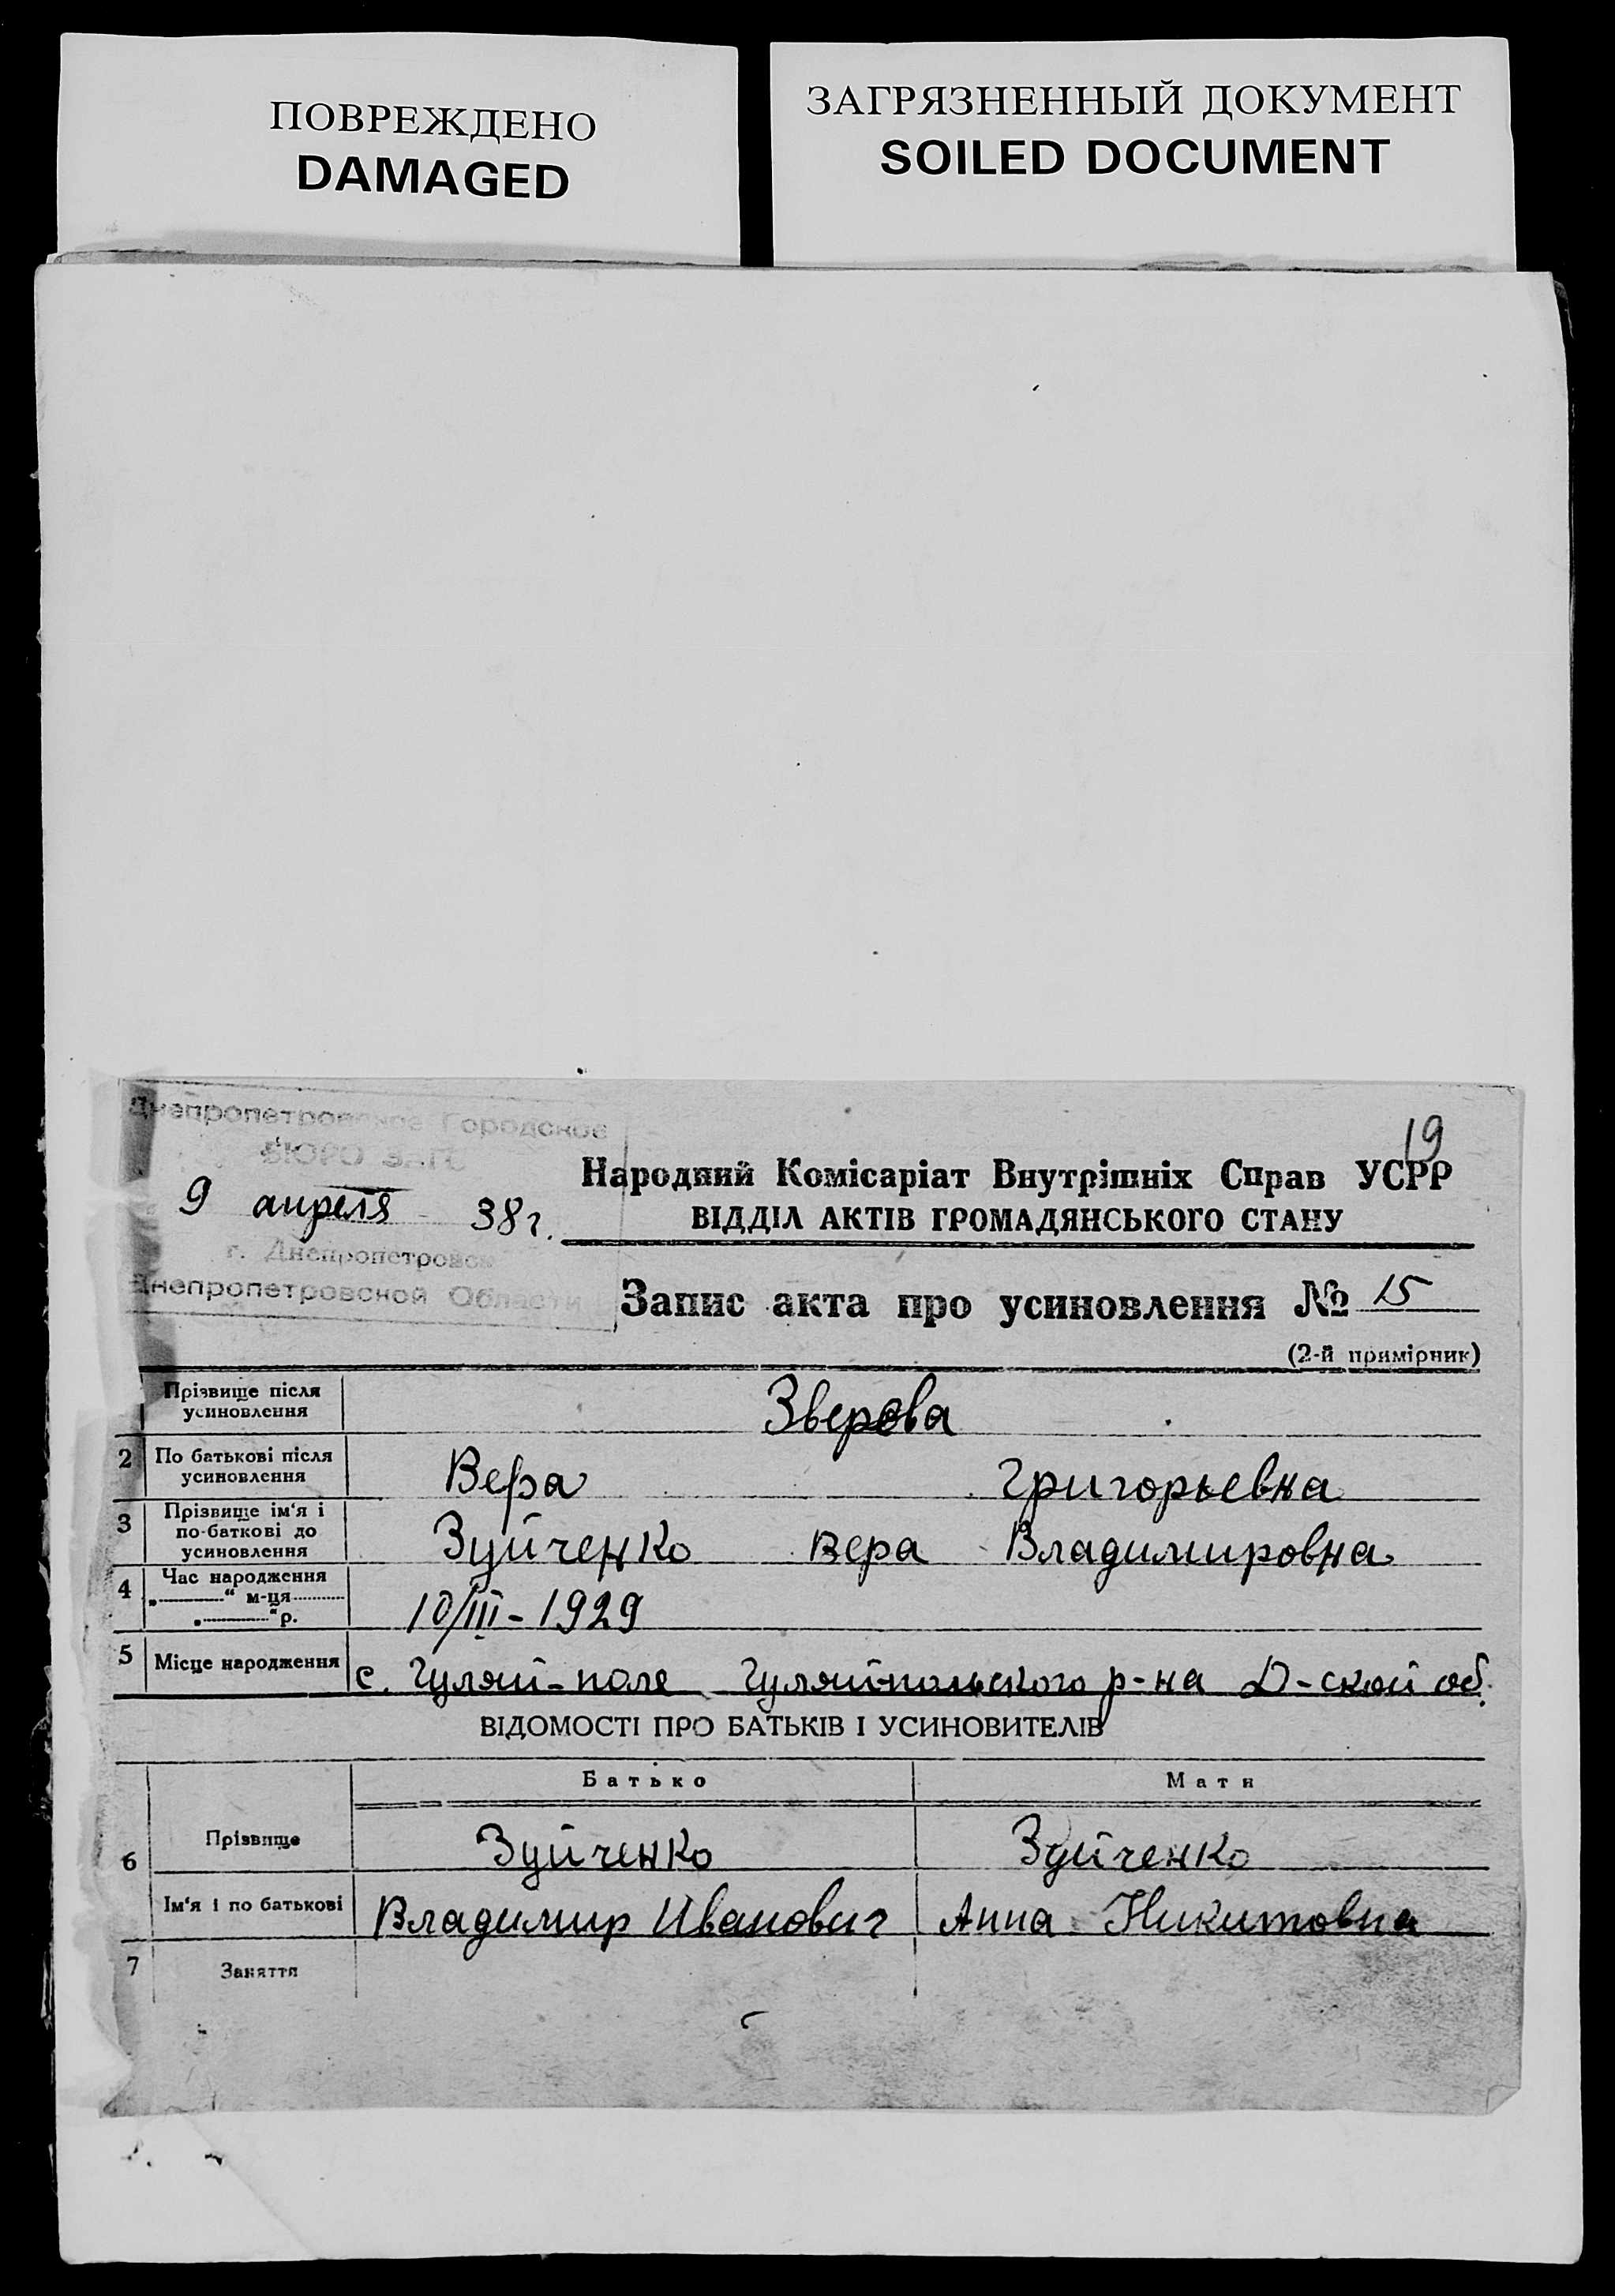 ПОВРЕЖДЕНО
DAMAGED
ЗАГРЯЗНЕННЫЙ ДОКУМЕНТ
SOILED DOCUMENT
19
Днепропетровское Городское
БЮРО ЗАГС
9 апреля 38 г.
г. Днепропетровск
Днепропетровской Области
Народний Комісаріат Внутрішніх Справ УСРР
ВІДДІЛ АКТІВ ГРОМАДЯНСЬКОГО СТАНУ
Запис акта про усиновлення № 15
(2-й примірник)
Прізвище після усиновлення Зверева
2 По батькові після усиновлення Вера Григорьевна
3 Прізвище ім'я і по-баткові до усиновлення Зуйченко Вера Владимировна
4 Час народження „ “ м-ця „ “ р. 10/III-1929
5 Місце народження с. Гуляй-поле Гуляйпольского р-на Д-ской об.
ВІДОМОСТІ ПРО БАТЬКІВ І УСИНОВИТЕЛІВ
Батько Мати
6 Прізвище Зуйченко Зуйченко
Ім'я і по батькові Владимир Иванович Анна Никитовна
7 Заняття